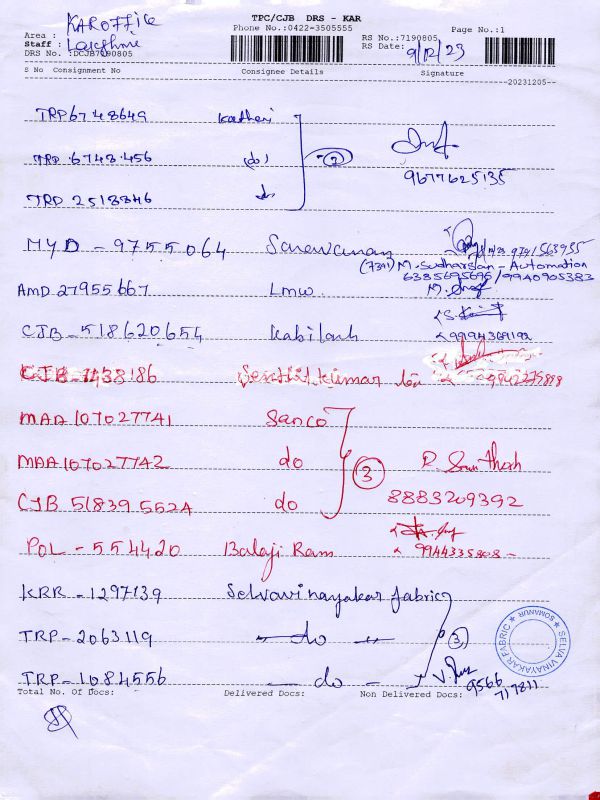 TPC/CJB DRS - KAR
Phone No.:0422-3505555
Page No.:1
Area : KAR OFFICE
Staff :
DRS No.:DCJB7190805
RS No.:7190805
RS Date: 9/12/23
S No Consignment No Consignee Details Signature
20231205--
TRP 6748649 Kathari
TRP 6748456 (do) (3)
TRP 2518846 do
9677625135
MYD - 9755064 Saravanan
(7391) M. Sudharsan - Automation
6385695695 / 9940905383
AMD 27955667 Lmw
CJB - 518620654 Kabilash
CJB - 7438186 Senthil kumar
MAA 107027741 Sanco
MAA 107027742 do (3) R. Santhosh
CJB 518395524 do 8883209392
POL - 554420 Balaji Ram
9944335808 -
KRR - 1297139 Selvavinayakar fabric
TRP - 2063119 do (3)
TRP - 1084556 do
9566
717811
SELVA VINAYAKAR FABRIC
SOMANUR
Total No. Of Docs: Delivered Docs: Non Delivered Docs: